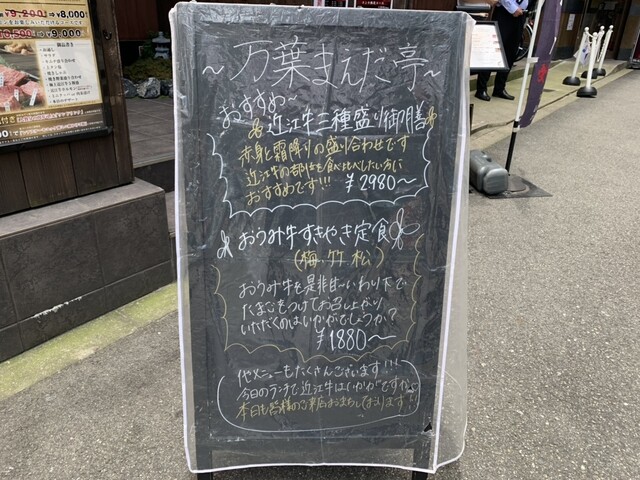 ～万葉まえだ亭～
おすすめ～
近江牛二種盛り御膳
赤身と霜降りの盛り合わせです
近江牛の部位を食べ比べしたい方に
おすすめです!!!
¥2980～
おうみ牛すきやき定食
(梅・竹・松)
おうみ牛を是非甘～いわり下で
たまごをつけてお召し上がり
いただくのはいかがでしょうか?
¥1880～
他メニューもたくさんございます!!!
今日のランチで近江牛はいかがですか。
本日も皆様のご来店お待ちしております!!
¥8,000!
¥9,000